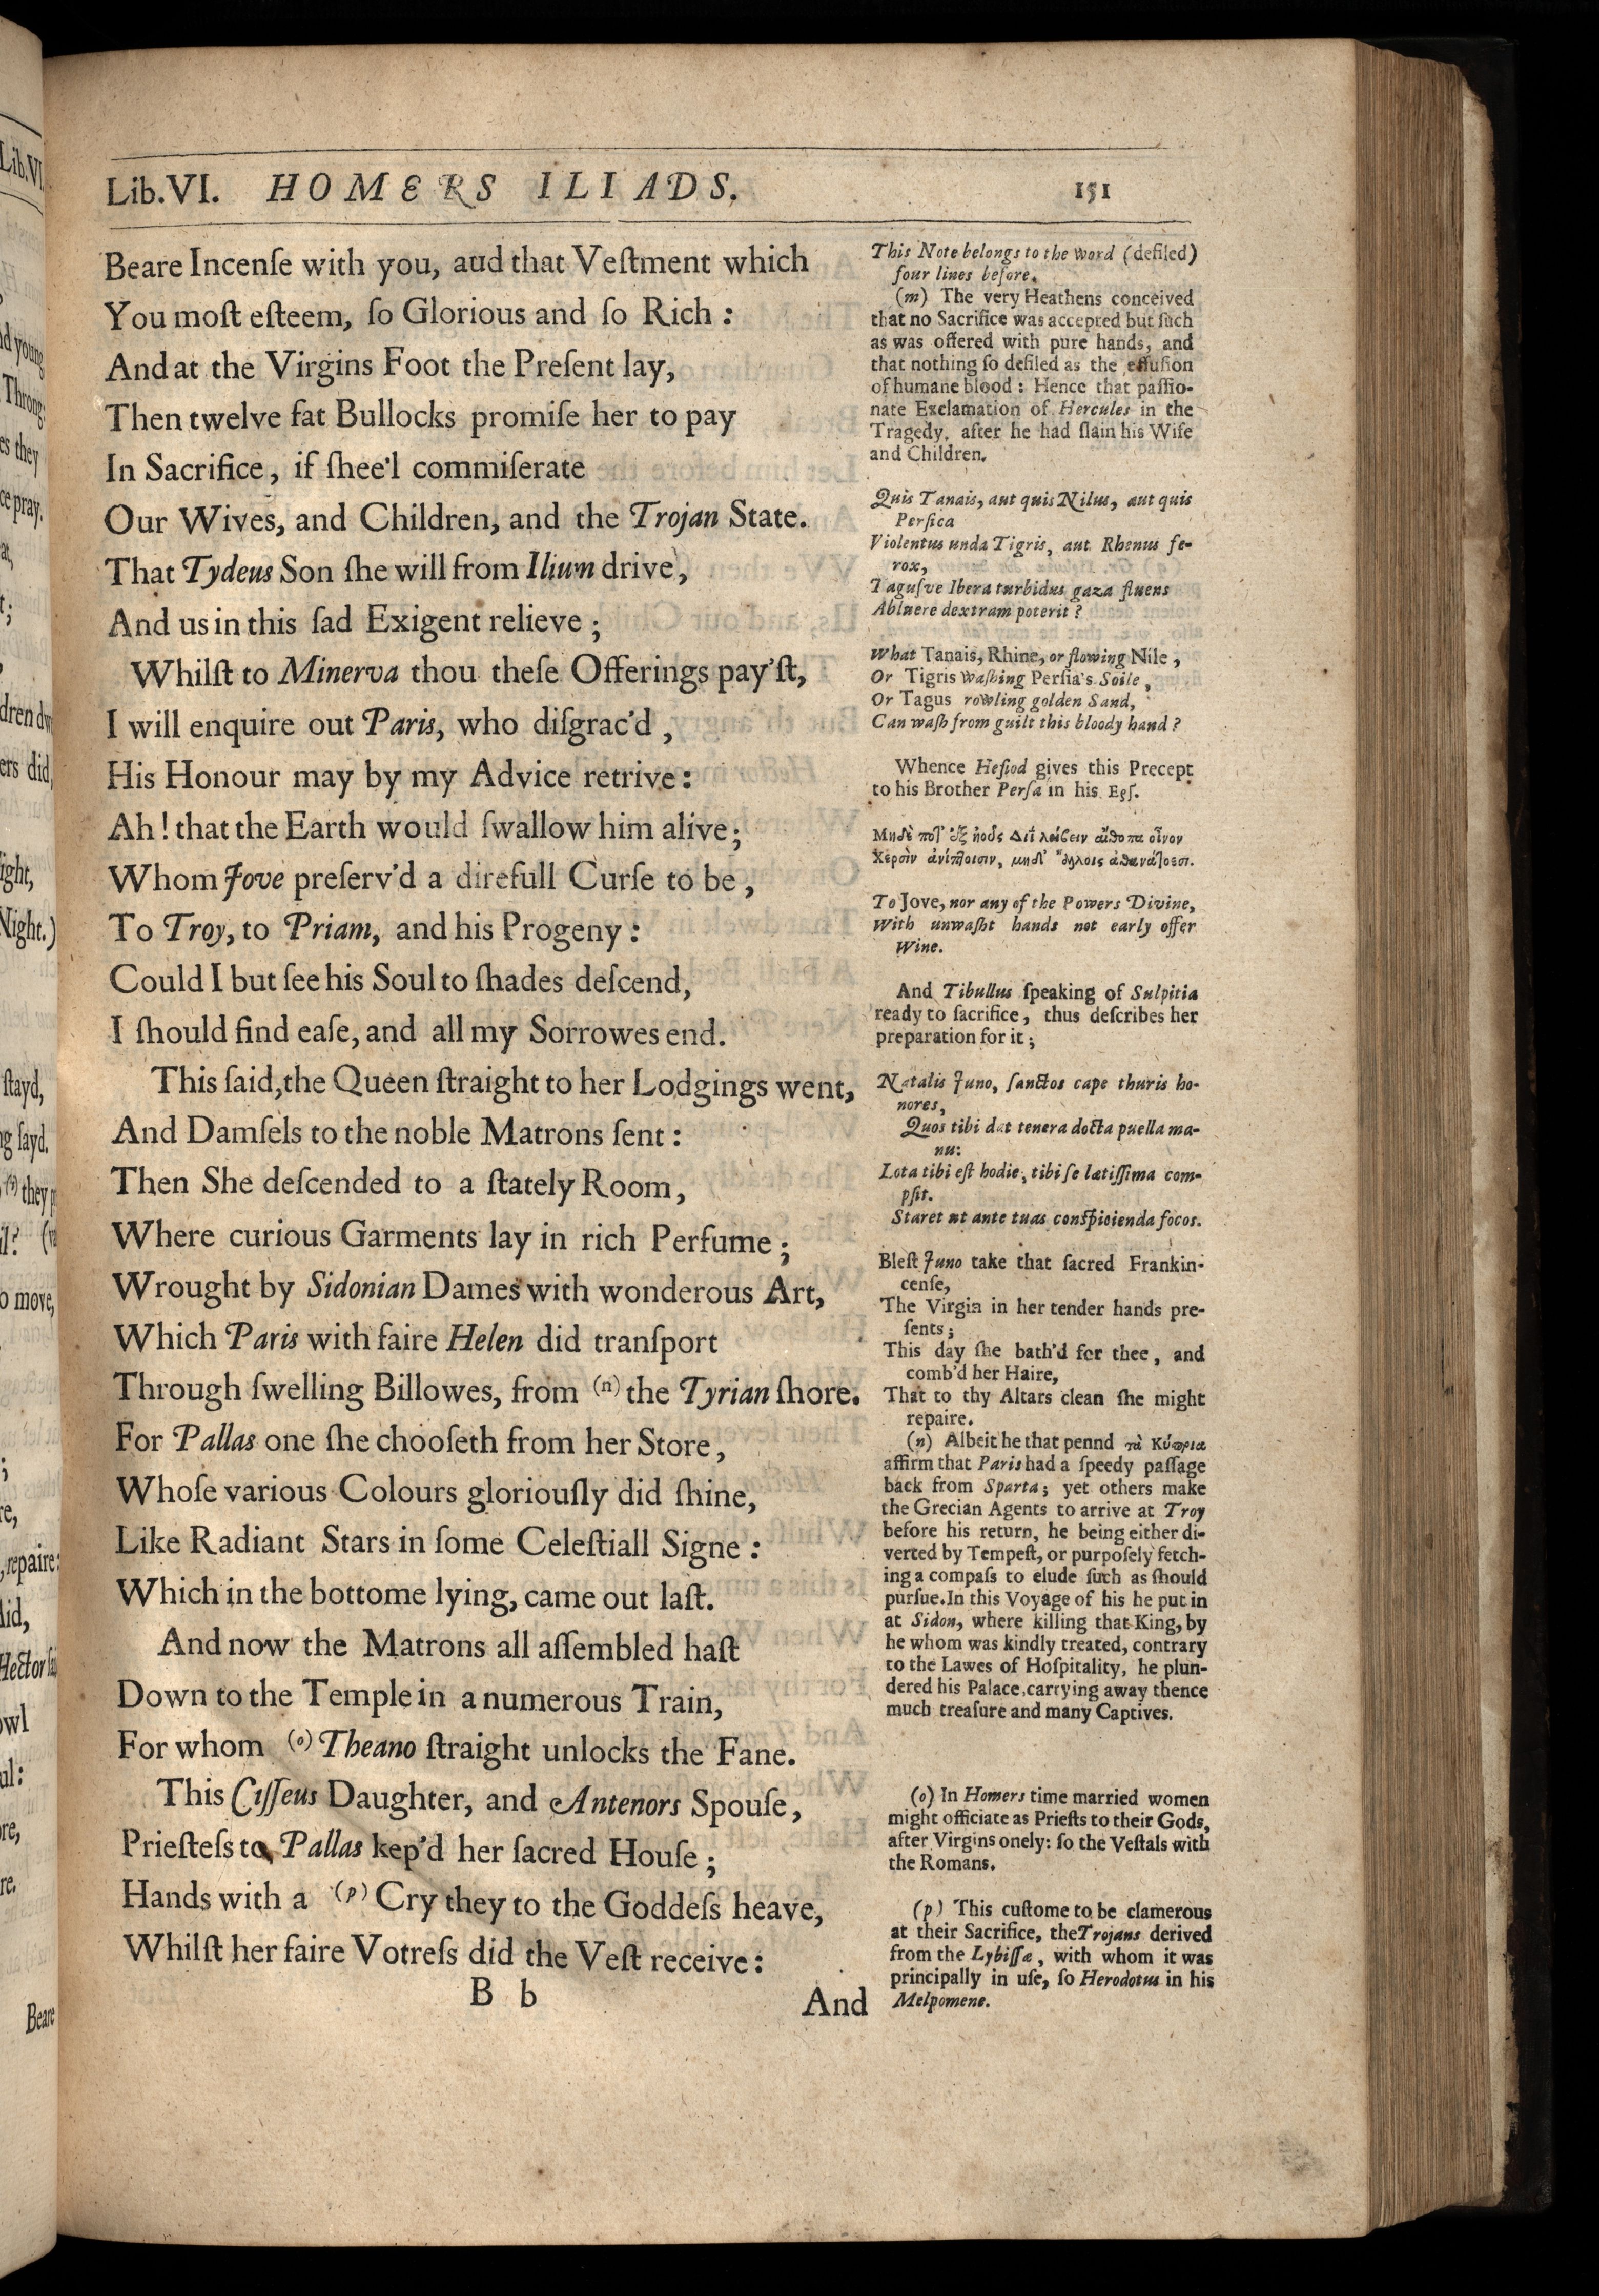 Lib.VI. HOMERS ILIADS. 151
Beare Incenſe with you, aud that Veſtment which
You moſt eſteem, ſo Glorious and ſo Rich :
And at the Virgins Foot the Preſent lay,
Then twelve fat Bullocks promiſe her to pay
In Sacrifice, if ſhee'l commiſerate
Our Wives, and Children, and the Trojan State.
That Tydeus Son ſhe will from Ilium drive,
And us in this ſad Exigent relieve ;
Whilſt to Minerva thou theſe Offerings pay'ſt,
I will enquire out Paris, who diſgrac'd ,
His Honour may by my Advice retrive :
Ah ! that the Earth would ſwallow him alive ;
Whom Jove preſerv'd a direfull Curſe to be ,
To Troy, to Priam, and his Progeny :
Could I but ſee his Soul to ſhades deſcend,
I ſhould find eaſe, and all my Sorrowes end.
This ſaid, the Queen ſtraight to her Lodgings went,
And Damſels to the noble Matrons ſent :
Then She deſcended to a ſtately Room,
Where curious Garments lay in rich Perfume ;
Wrought by Sidonian Dames with wonderous Art,
Which Paris with faire Helen did tranſport
Through ſwelling Billowes, from (n) the Tyrian ſhore.
For Pallas one ſhe chooſeth from her Store ,
Whoſe various Colours gloriouſly did ſhine,
Like Radiant Stars in ſome Celeſtiall Signe :
Which in the bottome lying, came out laſt.
And now the Matrons all aſſembled haſt
Down to the Temple in a numerous Train,
For whom (o) Theano ſtraight unlocks the Fane.
This Ciſſeus Daughter, and Antenors Spouſe,
Prieſteſs to Pallas kep'd her ſacred Houſe ;
Hands with a (p) Cry they to the Goddeſs heave,
Whilſt her faire Votreſs did the Veſt receive :
B b
And
This Note belongs to the word (defiled)
four lines before.
(m) The very Heathens conceived
that no Sacrifice was accepted but ſuch
as was offered with pure hands, and
that nothing ſo defiled as the effuſion
of humane blood : Hence that paſſio-
nate Exclamation of Hercules in the
Tragedy, after he had ſlain his Wife
and Children.
Quis Tanais, aut quis Nilus, aut quis
Perſica
Violentus unda Tigris, aut Rhenus fe-
rox,
Taguſve Ibera turbidus gaza fluens
Abluere dextram poterit ?
What Tanais, Rhine, or flowing Nile ,
Or Tigris waſhing Perſia's Soile ,
Or Tagus rowling golden Sand,
Can waſh from guilt this bloody hand ?
Whence Heſiod gives this Precept
to his Brother Perſa in his Εργ.
Μηδέ ποτ' ἐξ ἠοῦς Διῒ λείβειν αἴθοπα οἶνον
Χερσὶν ἀνίπτοισιν, μηδ' ἄλλοις ἀθανάτοισι.
To Jove, nor any of the Powers Divine,
With unwaſht hands not early offer
Wine.
And Tibullus ſpeaking of Sulpitia
ready to ſacrifice, thus deſcribes her
preparation for it ;
Natalis Juno, ſanctos cape thuris ho-
nores,
Quos tibi dat tenera docta puella ma-
nu:
Lota tibi eſt hodie, tibi ſe lætiſſima com-
pſit.
Staret ut ante tuas conſpicienda focos.
Bleſt Juno take that ſacred Frankin-
cenſe,
The Virgin in her tender hands pre-
ſents ;
This day ſhe bath'd for thee, and
comb'd her Haire,
That to thy Altars clean ſhe might
repaire.
(n) Albeit he that pennd τὰ Κύπρια
affirm that Paris had a ſpeedy paſſage
back from Sparta; yet others make
the Grecian Agents to arrive at Troy
before his return, he being either di-
verted by Tempeſt, or purpoſely fetch-
ing a compaſs to elude ſuch as ſhould
purſue.In this Voyage of his he put in
at Sidon, where killing that King, by
he whom was kindly treated, contrary
to the Lawes of Hoſpitality, he plun-
dered his Palace, carrying away thence
much treaſure and many Captives.
(o) In Homers time married women
might officiate as Prieſts to their Gods,
after Virgins onely: ſo the Veſtals with
the Romans.
(p) This cuſtome to be clamerous
at their Sacrifice, the Trojans derived
from the Lybiſſæ, with whom it was
principally in uſe, ſo Herodotus in his
Melpomene.